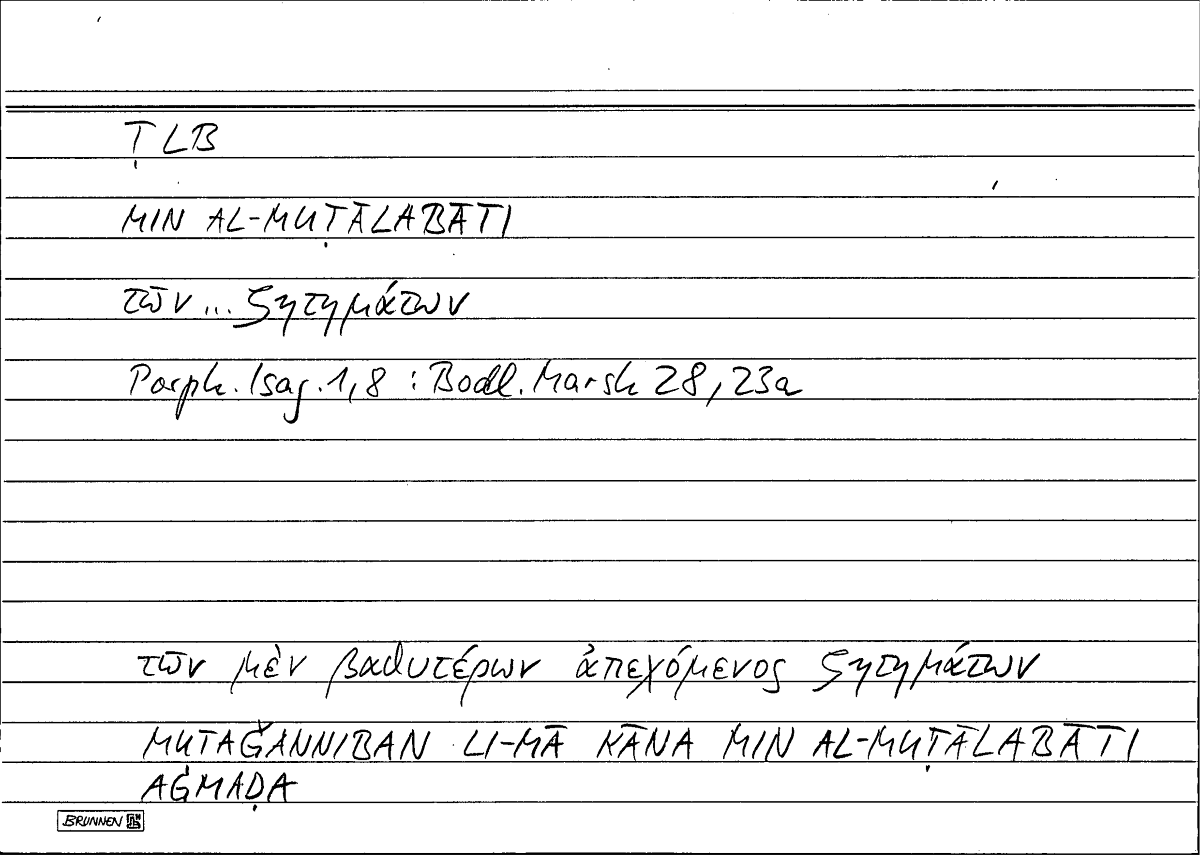 ṬLB
MIN AL-MUṬĀLABĀTI
τῶν ... ζητημάτων
Porph. Isag. 1,8 : Bodl. Marsh 28, 23a
τῶν μὲν βαθυτέρων ἀπεχόμενος ζητημάτων
MUTAǦANNIBAN LI-MĀ KĀNA MIN AL-MUṬĀLABĀTI
AĠMAḌA
BRUNNEN